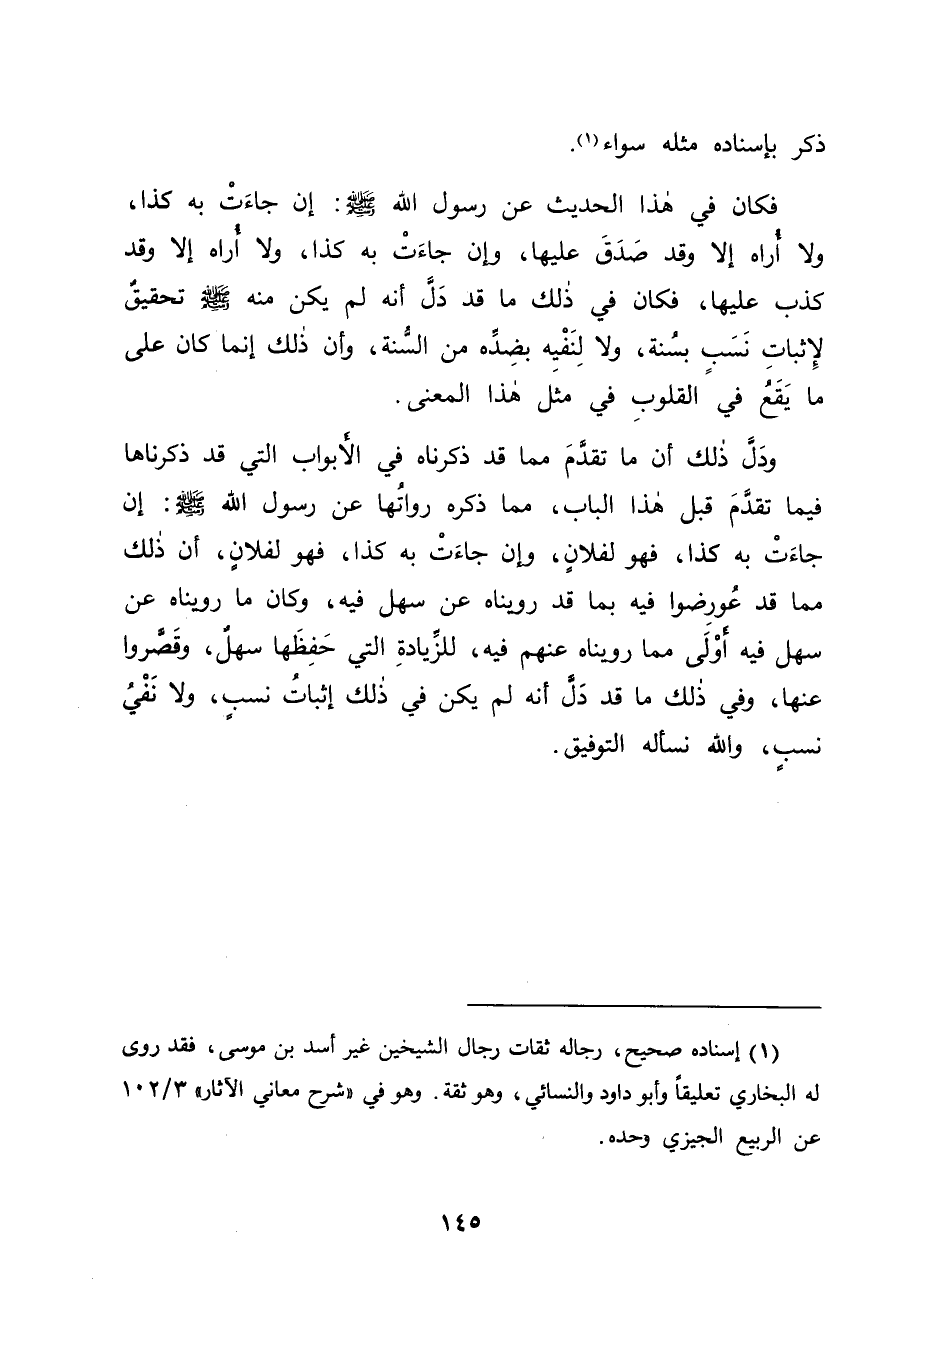 ذكر بإسناده مثله سواء(١).
فكان في هٰذا الحديث عن رسول الله ﷺ: إن جاءَتْ به كذا،
ولا أُراه إلا وقد صَدَقَ عليها، وإن جاءَتْ به كذا، ولا أُراه إلا وقد
كذب عليها، فكان في ذٰلك ما قد دَلَّ أنه لم يكن منه ﷺ تحقيقٌ
لِإثباتِ نَسَبٍ بسُنة، ولا لِنَفْيِه بضِدِّه من السُّنة، وأن ذٰلك إنما كان على
ما يَقَعُ في القلوبِ في مثل هٰذا المعنى.
ودَلَّ ذٰلك أن ما تقدَّمَ مما قد ذكرناه في الأَبواب التي قد ذكرناها
فيما تقدَّمَ قبل هٰذا الباب، مما ذكره رواتُها عن رسول الله ﷺ: إن
جاءَتْ به كذا، فهو لفلانٍ، وإن جاءَتْ به كذا، فهو لفلانٍ، أن ذٰلك
مما قد عُورِضوا فيه بما قد رويناه عن سهل فيه، وكان ما رويناه عن
سهل فيه أَوْلَى مما رويناه عنهم فيه، للزِّيادةِ التي حَفِظَها سهلٌ، وقَصَّروا
عنها، وفي ذٰلك ما قد دَلَّ أنه لم يكن في ذٰلك إثباتُ نسبٍ، ولا نَفْيُ
نسبٍ، والله نسأله التوفيق.
(١) إسناده صحيح، رجاله ثقات رجال الشيخين غير أسد بن موسى، فقد روى
له البخاري تعليقاً وأبو داود والنسائي، وهو ثقة. وهو في «شرح معاني الآثار» ١٠٢/٣
عن الربيع الجيزي وحده.
١٤٥